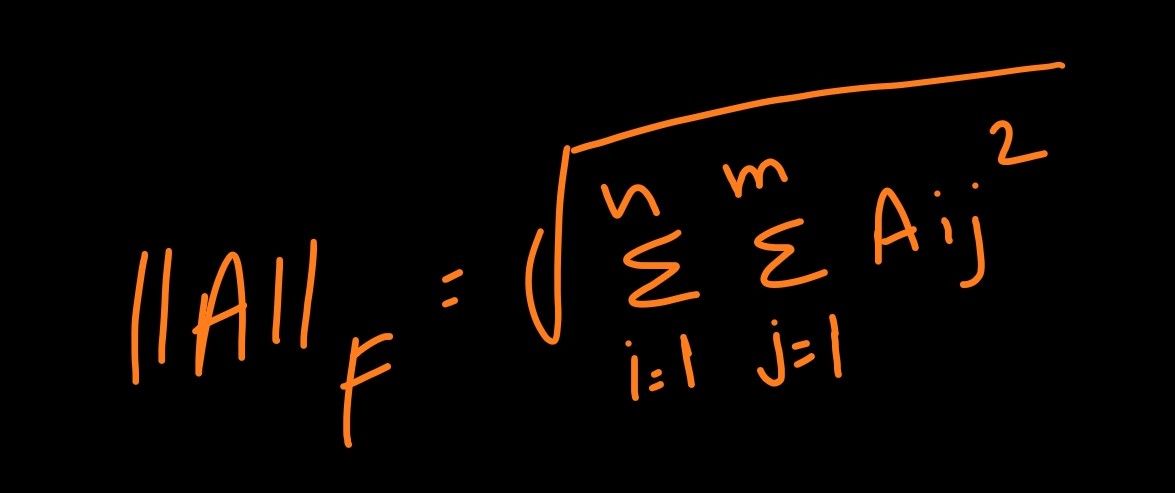 ||A||_F = √(∑_{i=1}^{n} ∑_{j=1}^{m} A_{ij}^2)